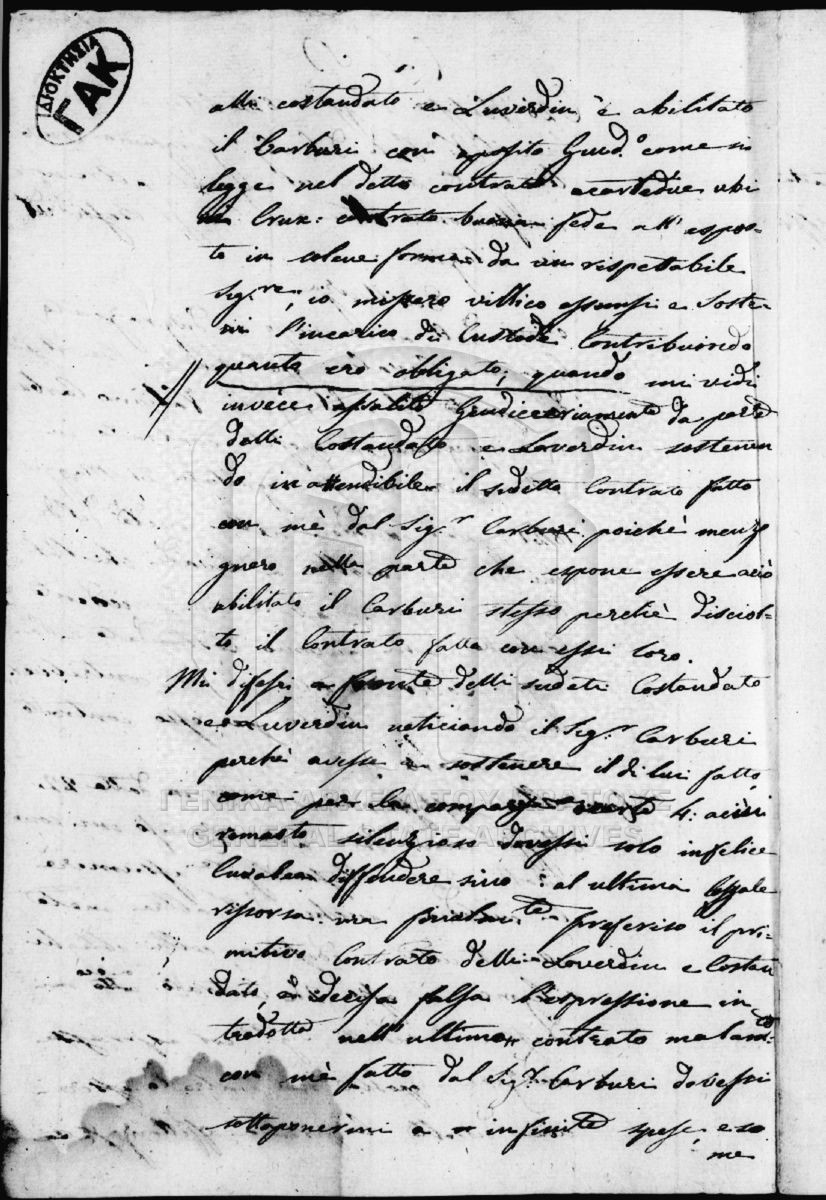 ΙΔΙΟΚΤΗΣΙΑ
ΓΑΚ
alli costandato e Luverdin è abilitato
il Carburi con aposito Giud.º come si
legge nel detto contrato
Crux: contrato buona fede all' espos-
to in forma da un rispettabile
Sig.re, io misero villico assunsi e soste-
ni l'incarico di Custode Contribuendo
quanto ero obligato; quando mi vidi
invece Giudiceriamente da parte
delli Costandato e Loverdin sostenen
do inattendibile il sudetto Contrato fatto
con mè dal Sig.r Carburi poichè menzo
gnero nella parte che espone essere
abilitato il Carburi stesso perchè disciol-
to il Contrato fatto con essi loro.
Mi difesi a fronte delli sudeti Costandato
e Luverdin il Sig.r Carburi
perchè avesse a sostenere il di lui fatto,
come per la 4:
remasto silenzioso dovessi solo infelice
diffendere sino al ultima legale
rissorsa: ma preferiso il pri-
mitivo Contrato delli Loverdin e Costan
dato, è decisa falsa l'espressione in
trodotta nell' ultimo contrato
con mè fatto dal Sig.r Carburi dovessi
sottoponermi a infinite spese, e so
me
ΓΕΝΙΚΑ ΑΡΧΕΙΑ ΤΟΥ ΚΡΑΤΟΥΣ
GENERAL STATE ARCHIVES